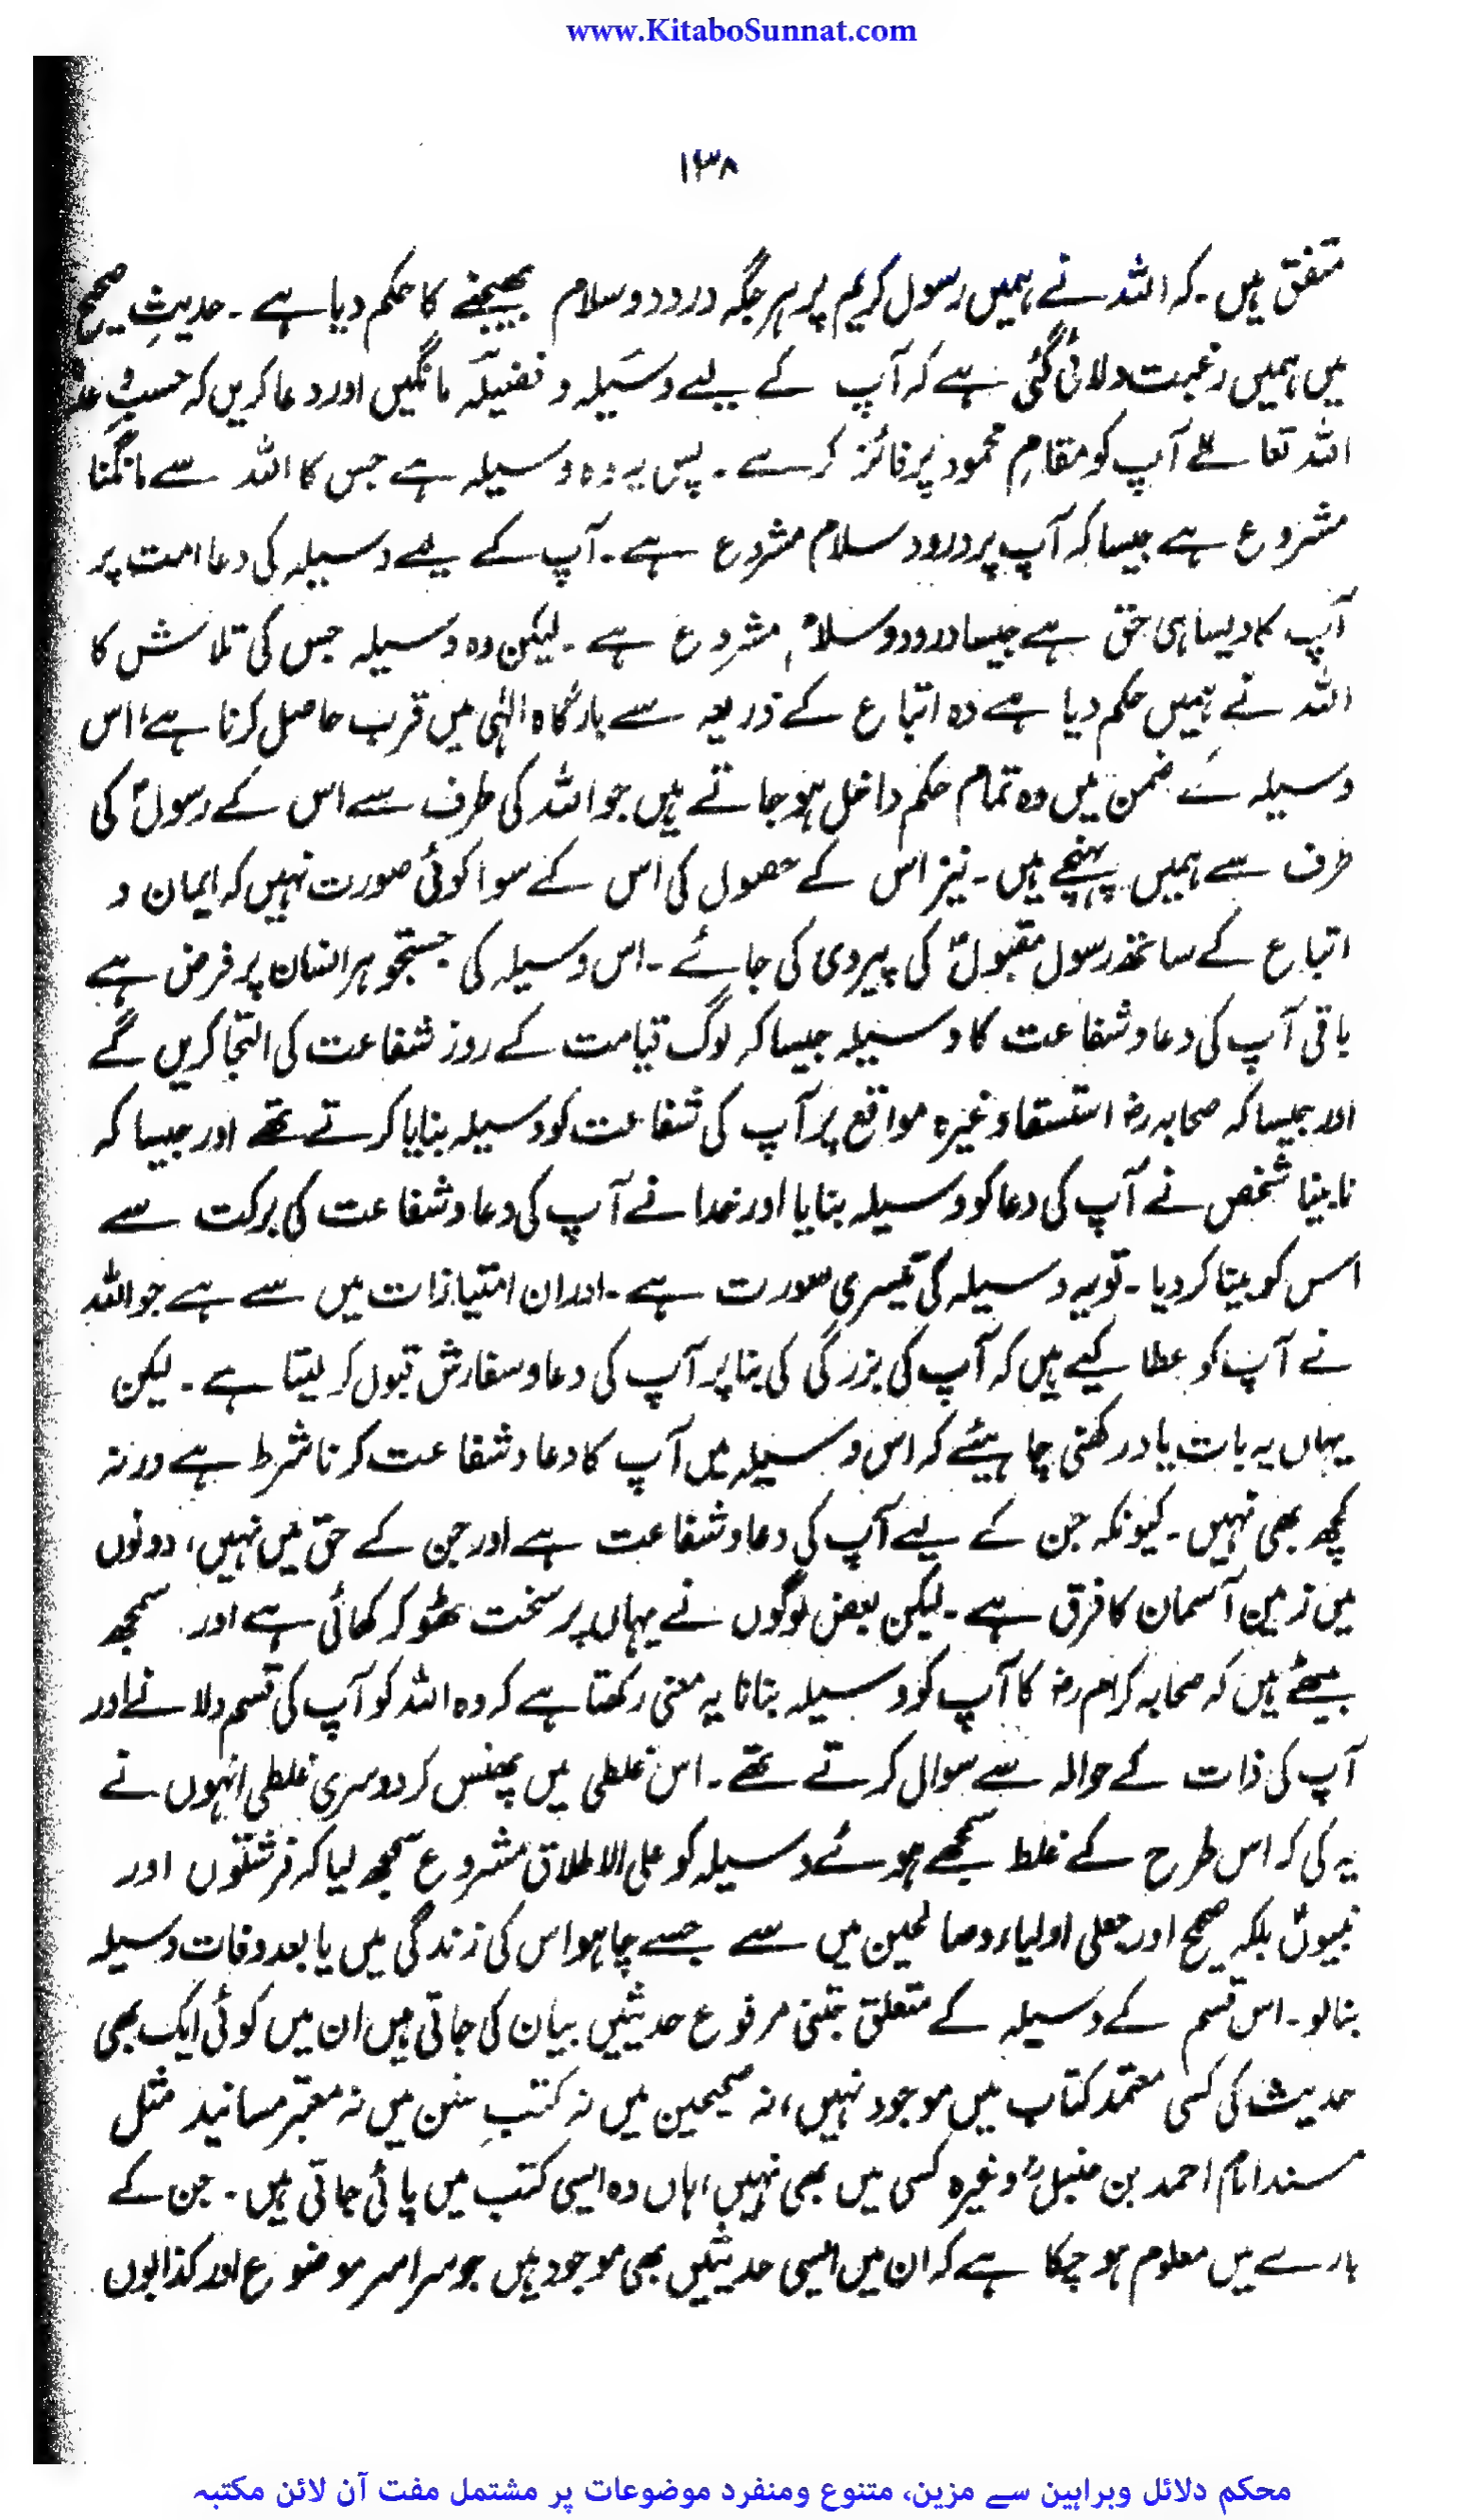 www.KitaboSunnat.com
۱۳۸
متفق ہیں۔ کہ اللہ نے ہمیں رسول کریم پر ہر جگہ درود وسلام بھیجنے کا حکم دیا ہے۔ حدیثِ صحیح
میں ہمیں رغبت دلائی گئی ہے کہ آپ کے لیے وسیلہ و فضیلہ مانگیں اور دعا کریں کہ حسبِ
اللہ تعالےٰ آپ کو مقامِ محمود پر فائز کرے۔ پس یہ وہ وسیلہ ہے جس کا اللہ سے مانگنا
مشروع ہے جیسا کہ آپ پر درود سلام مشروع ہے۔ آپ کے لیے وسیلہ کی دعا امت پر
آپ کا ویسا ہی حق ہے جیسا درود وسلام مشروع ہے۔ لیکن وہ وسیلہ جس کی تلاش کا
اللہ نے ہمیں حکم دیا ہے وہ اتباع کے ذریعہ سے بارگاہ الٰہی میں قرب حاصل کرنا ہے، اس
وسیلہ کے ضمن میں وہ تمام حکم داخل ہو جاتے ہیں جو اللہ کی طرف سے اس کے رسولؐ کی
طرف سے ہمیں پہنچے ہیں۔ نیز اس کے حصول کی اس کے سوا کوئی صورت نہیں کہ ایمان و
اتباع کے ساتھ رسول مقبولؐ کی پیروی کی جائے۔ اس وسیلہ کی جستجو ہر انسان پر فرض ہے
باقی آپ کی دعا وشفاعت کا وسیلہ جیسا کہ لوگ قیامت کے روز شفاعت کی التجا کریں گے
اور جیسا کہ صحابہ رضؓ استسقا وغیرہ مواقع پر آپ کی شفاعت کو وسیلہ بنایا کرتے تھے اور جیسا کہ
نابینا شخص نے آپ کی دعا کو وسیلہ بنایا اور خدا نے آپ کی دعا وشفاعت کی برکت سے
اس کو بینا کر دیا۔ تو یہ وسیلہ کی تیسری صورت ہے۔ اور ان امتیازات میں سے ہے جو اللہ
نے آپ کو عطا کیے ہیں کہ آپ کی بزرگی کی بنا پر آپ کی دعا وسفارش قبول کر لیتا ہے۔ لیکن
یہاں یہ بات یاد رکھنی چاہیئے کہ اس وسیلہ میں آپ کا دعا وشفاعت کرنا شرط ہے ورنہ
کچھ بھی نہیں۔ کیونکہ جن کے لیے آپ کی دعا وشفاعت ہے اور جن کے حق میں نہیں، دونوں
میں زمین آسمان کا فرق ہے۔ لیکن بعض لوگوں نے یہاں پر سخت ٹھوکر کھائی ہے اور سمجھ
بیٹھے ہیں کہ صحابہ کرام رضؓ کا آپ کو وسیلہ بنانا یہ معنی رکھتا ہے کہ وہ اللہ کو آپ کی قسم دلاتے اور
آپ کی ذات کے حوالہ سے سوال کرتے تھے۔ اس غلطی میں پھنس کر دوسری غلطی انہوں نے
یہ کی کہ اس طرح کے غلط سمجھے ہوئے وسیلہ کو علی الاطلاق مشروع سمجھ لیا کہ فرشتوں اور
نبیوںؑ بلکہ صحیح اور جعلی اولیاء وصالحین میں سے جسے چاہو اس کی زندگی میں یا بعد وفات وسیلہ
بنا لو۔ اس قسم کے وسیلہ کے متعلق جتنی مرفوع حدیثیں بیان کی جاتی ہیں ان میں کوئی ایک بھی
حدیث کی کسی معتمد کتاب میں موجود نہیں، نہ صحیحین میں نہ کتبِ سنن میں نہ معتبر مسانید مثل
مسند امام احمد بن حنبلؒ وغیرہ کسی میں بھی نہیں، ہاں وہ ایسی کتب میں پائی جاتی ہیں۔ جن کے
بارے میں معلوم ہو چکا ہے کہ ان میں ایسی حدیثیں بھی موجود ہیں جو سراسر موضوع اور کذابوں
محکم دلائل وبراہین سے مزین، متنوع ومنفرد موضوعات پر مشتمل مفت آن لائن مکتبہ